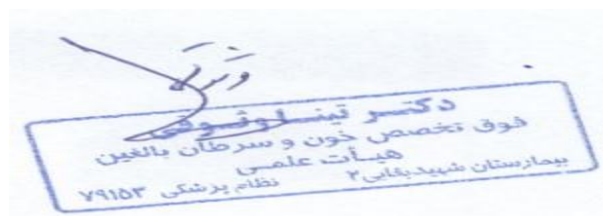 دکتر تینا وثوقی
فوق تخصص خون و سرطان بالغین
هیأت علمی
بیمارستان شهید بقایی ۲ نظام پزشکی ۷۹۱۵۳